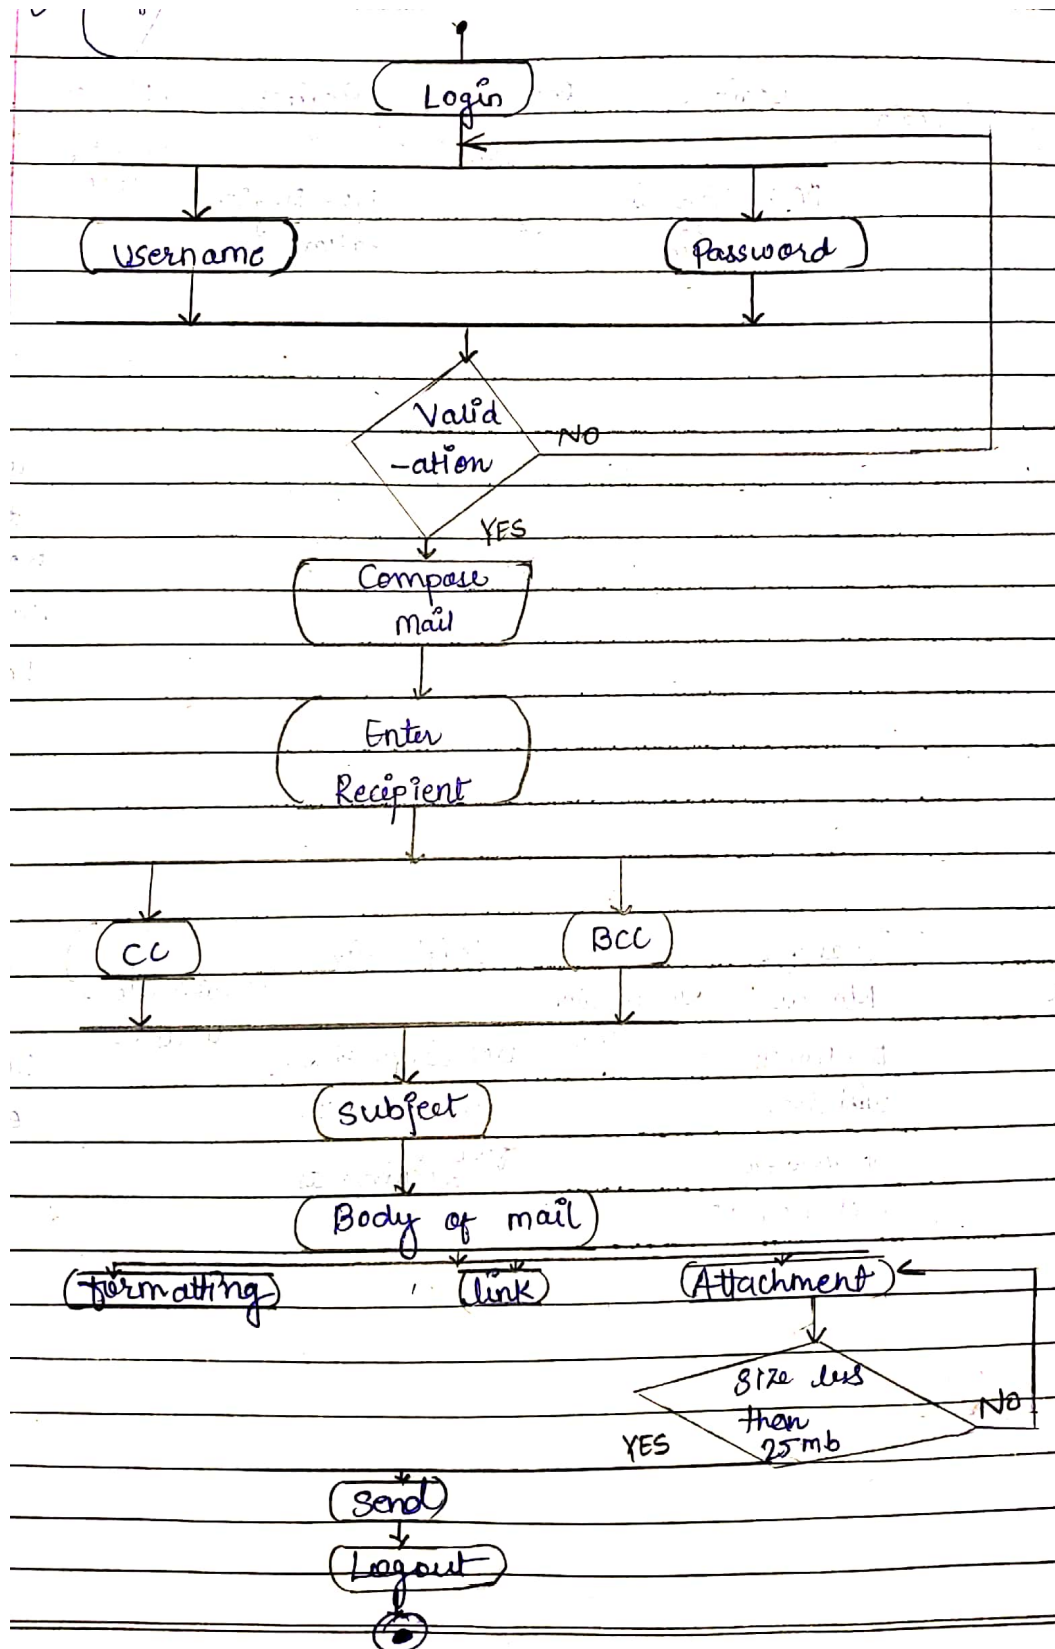 Login
Username
Password
Valid
-ation
NO
YES
Compose
mail
Enter
Recipient
CC
BCC
Subject
Body of mail
formatting
link
Attachment
Size less
then
25mb
NO
YES
Send
Logout